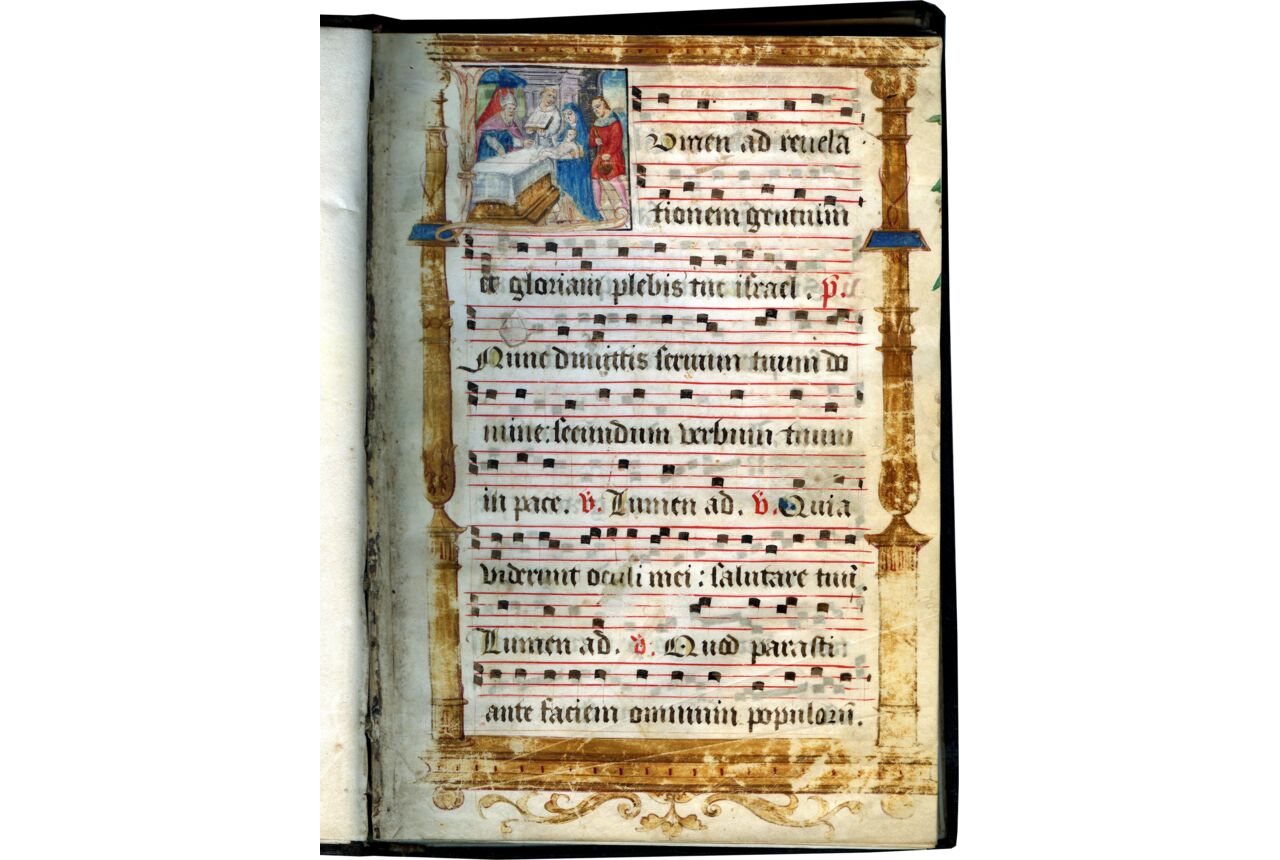 Vmen ad reuela
tionem gentium
et gloriam plebis tue israel. p̄.
Nunc dimittis seruum tuum do
mine: secundum verbum tuum
in pace. v̄. Lumen ad. v̄. Quia
viderunt oculi mei: salutare tuū.
Lumen ad. v̄. Quod parasti
ante faciem omnium populorū.